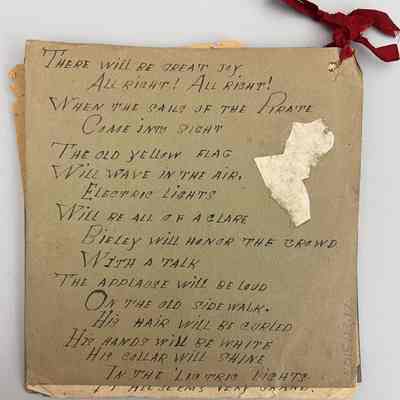 There will be great joy
All right! All right!
When the sails of the Pirate
Come into sight
The old yellow flag
Will wave in the air.
Electric lights
Will be all of a glare
Bieley will honor the crowd
With a talk
The applause will be loud
On the old sidewalk.
His hair will be curled
His hands will be white
His collar will shine
In the 'lectric lights.
very grand.